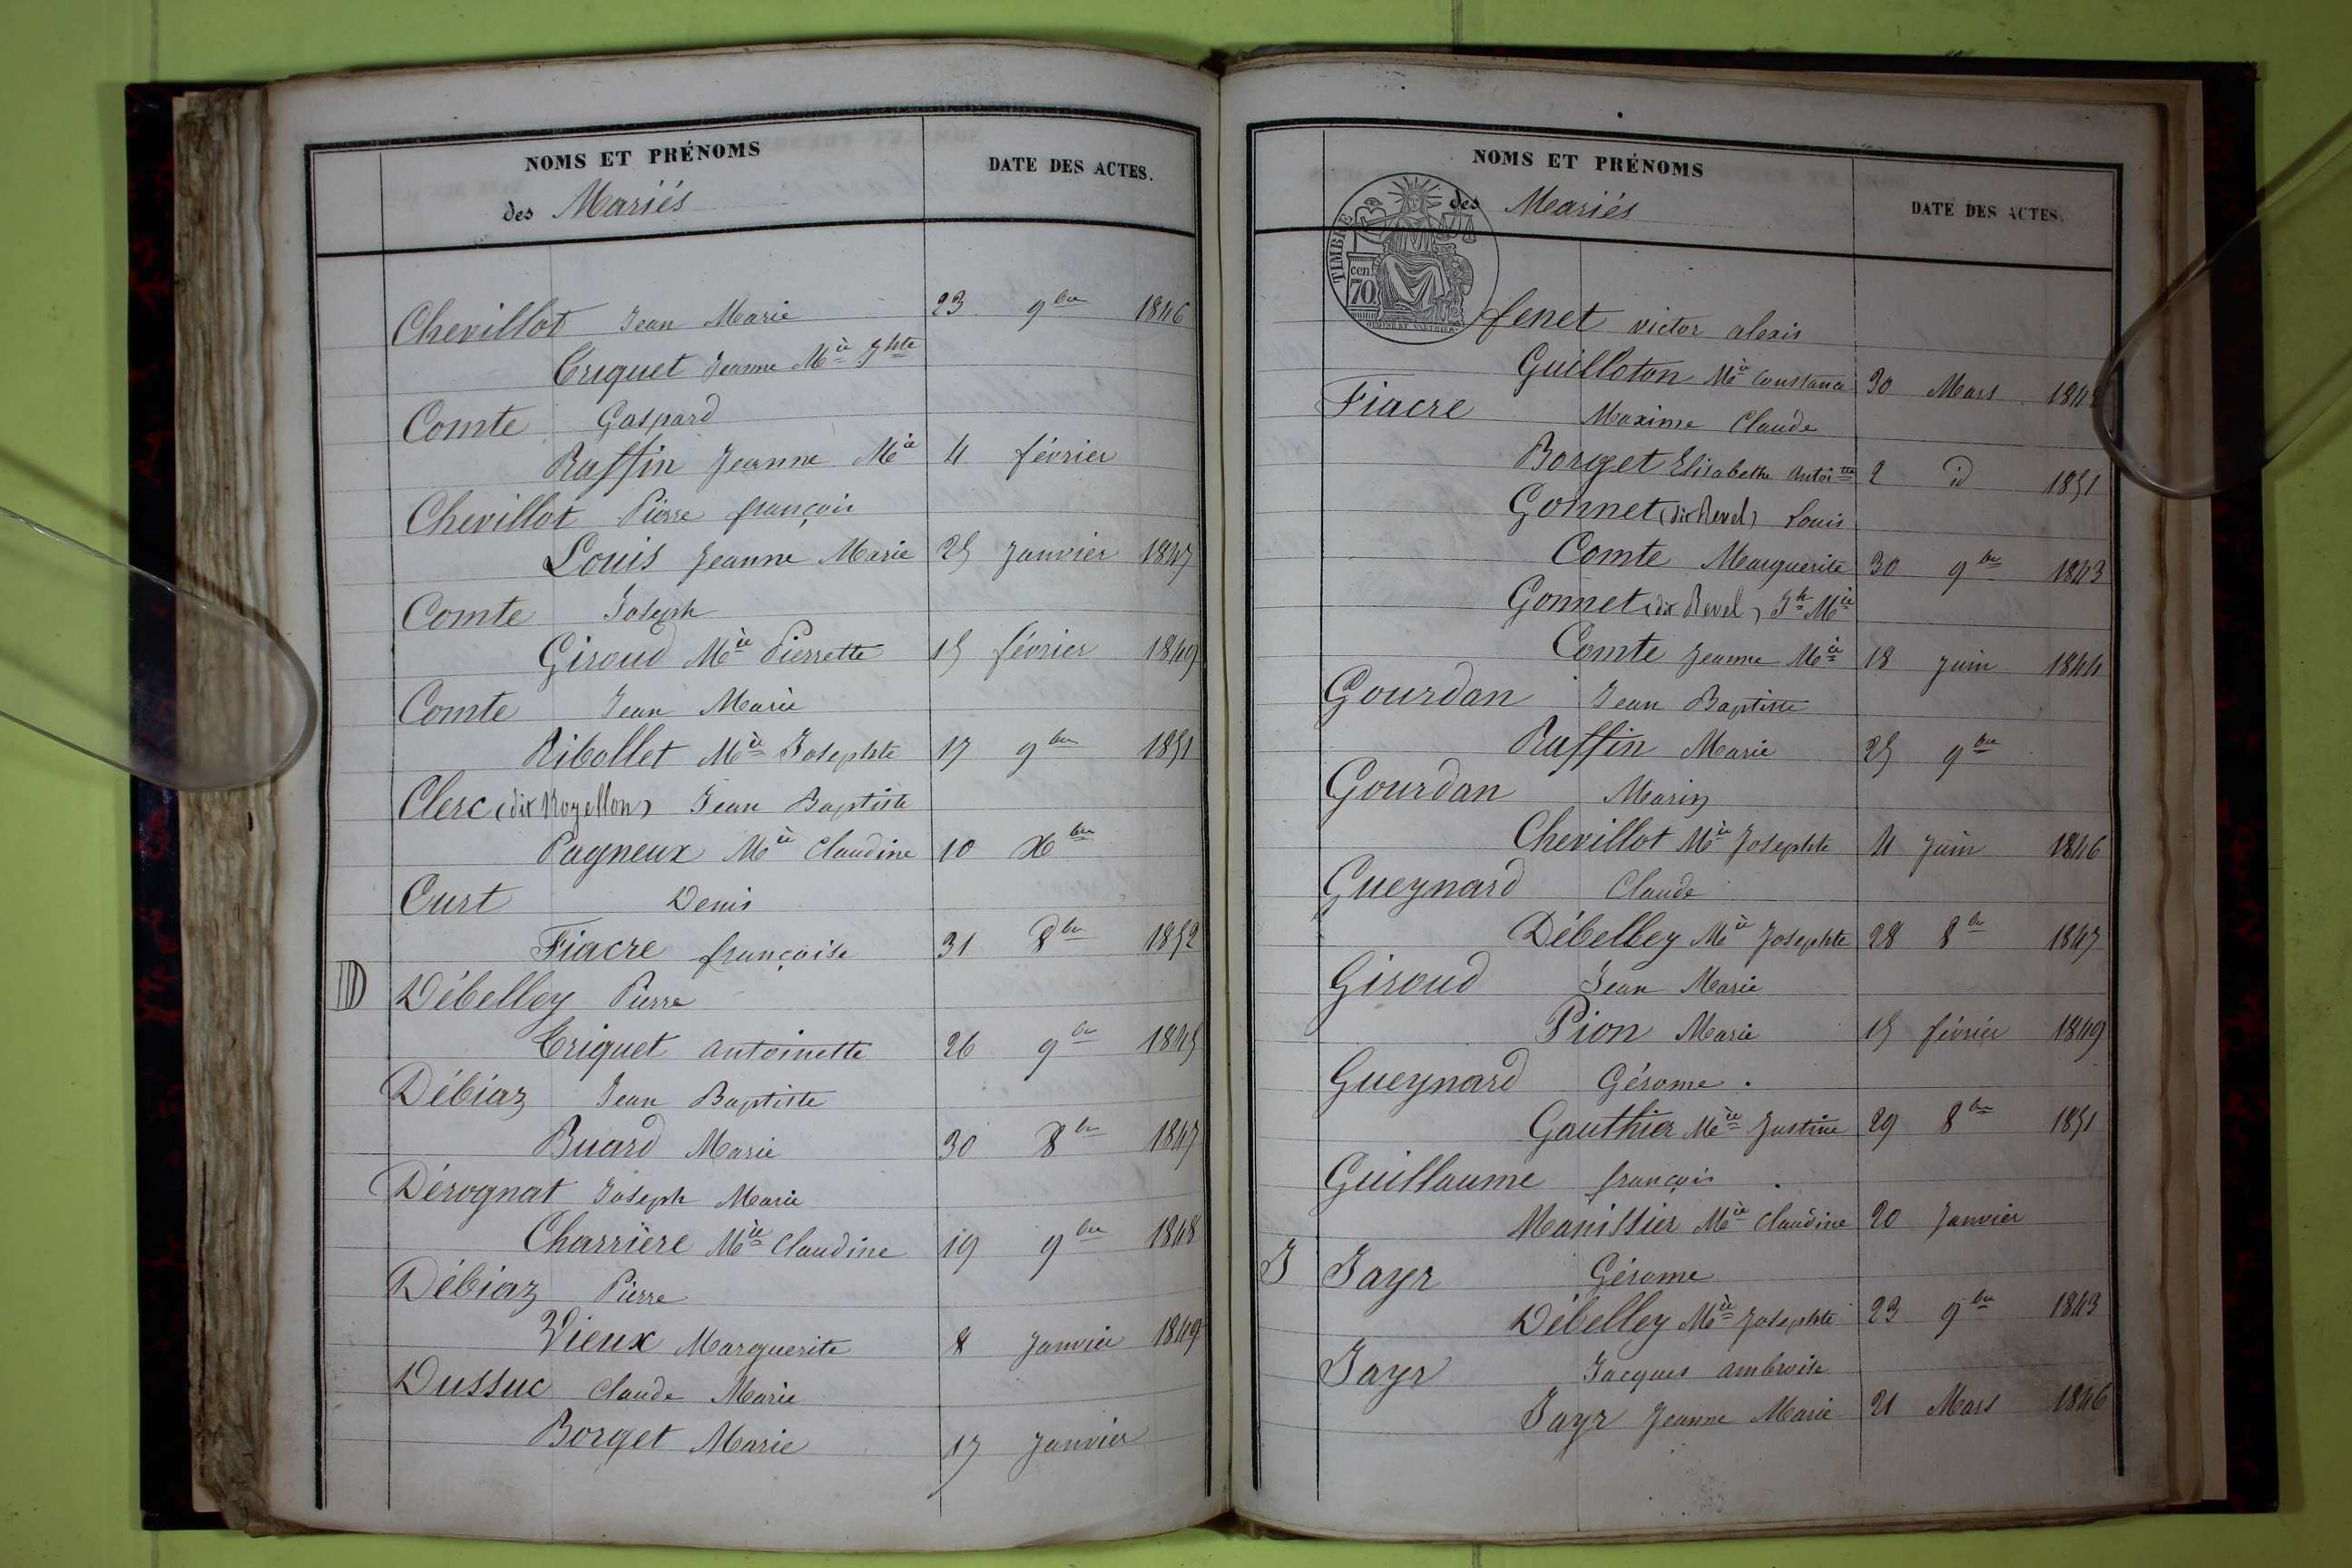 NOMS ET PRÉNOMS
des Mariés
DATE DES ACTES.
Chevillot Jean Marie 23 9bre 1846
Criquet Jeanne Mie Jhte
Comte Gaspard
Ruffin Jeanne Mie 4 février
Chevillot Pierre françois
Louis Jeanne Marie 25 Janvier 1847
Comte Joseph
Giroud Mie Pierrette 15 février 1849
Comte Jean Marie
Ribollet Mie Josephte 17 9bre 1851
Clerc (dit Rozellon) Jean Baptiste
Pagneux Mie Claudine 10 Xbre
Curt Denis
Fiacre françoise 31 8bre 1852
D Débelley Pierre
Criquet antoinette 26 9bre 1845
Débiaz Jean Baptiste
Buard Marie 30 8bre 1847
Dérognat Joseph Marie
Charrière Mie Claudine 19 9bre 1848
Débiaz Pierre
Vieux Marguerite 8 Janvier 1849
Dussuc Claude Marie
Borget Marie 17 Janvier
NOMS ET PRÉNOMS
des Mariés
DATE DES ACTES.
TIMBRE
cent
70
fenet victor alexis
Guilloton Mie Constance 30 Mars
Fiacre Maxime Claude
Borget Elisabeth Antoitte 2 id 1851
Gonnet (dit Revel) Louis
Comte Marguerite 30 9bre 1843
Gonnet (dit Revel) Jh Mie
Comte Jeanne Mie 18 Juin 1844
Gourdan Jean Baptiste
Ruffin Marie 25 9bre
Gourdan Marin
Chevillot Mie Josephte 4 Juin 1846
Gueynard Claude
Débelley Mie Josephte 28 8bre 1847
Giroud Jean Marie
Pion Marie 15 février 1849
Gueynard Gérome.
Gauthier Mie Justine 29 8bre 1851
Guillaume françois
Manissier Mie Claudine 20 Janvier
J Jayr Gérome
Débelley Mie Josephte 23 9bre 1843
Jayr Jacques ambroise
Jayr Jeanne Marie 21 Mars 1846